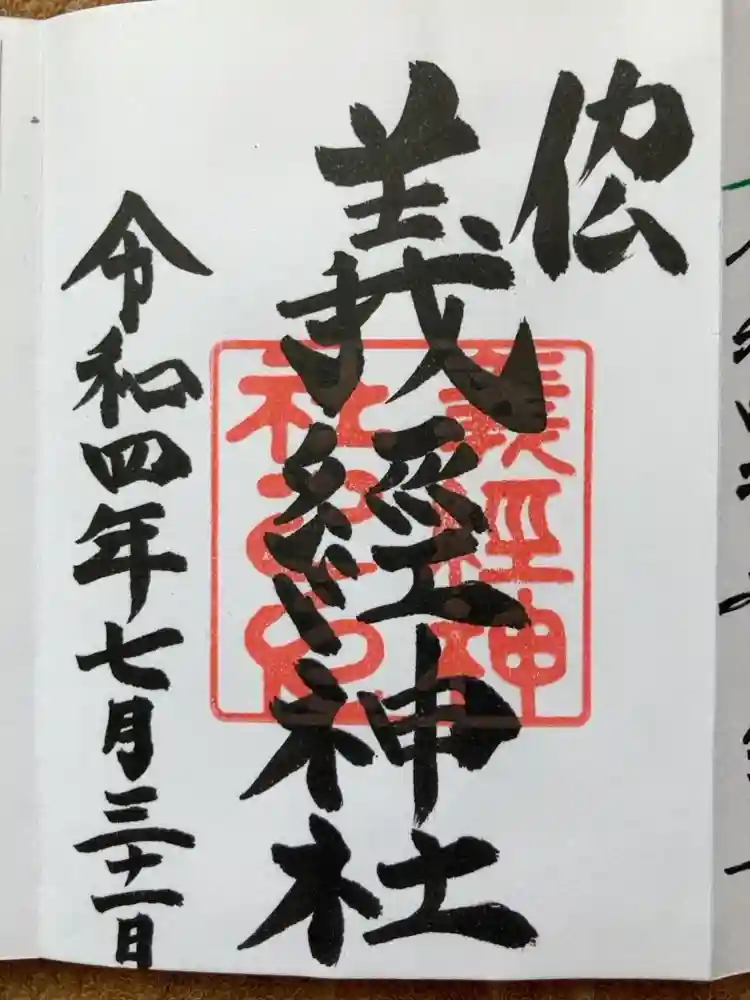 義經神社
義經神
社之印
令和四年七月三十一日